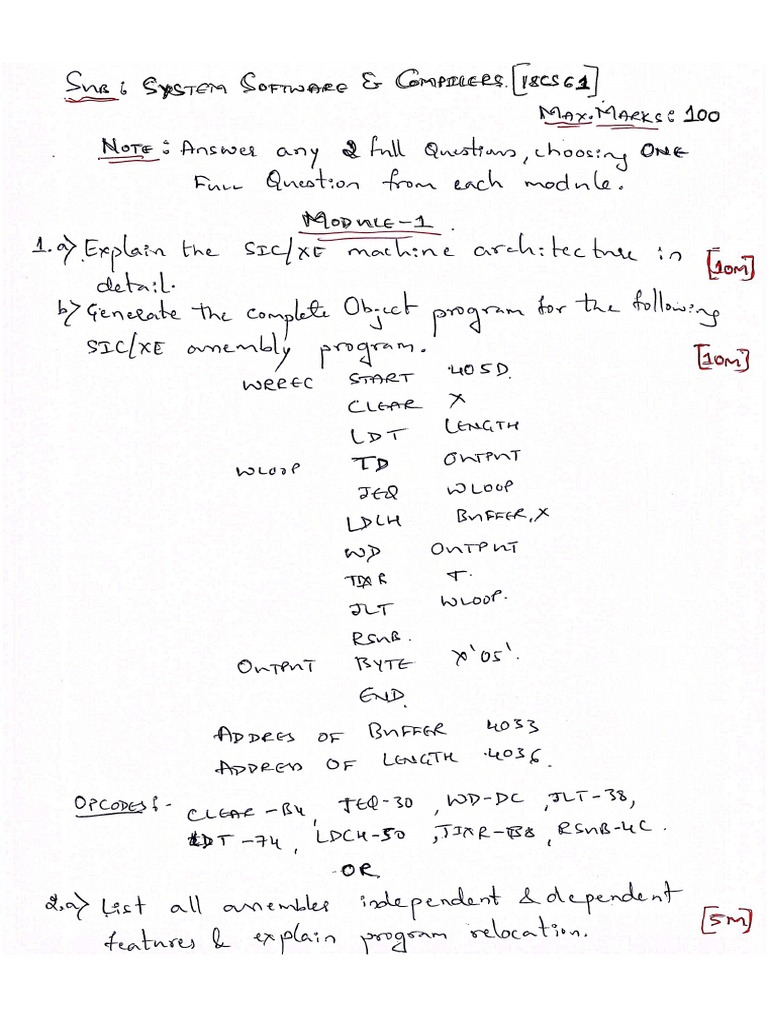 SUB: SYSTEM SOFTWARE & COMPILERS. [18CS61]
MAX. MARKS: 100
NOTE: Answer any 2 full Questions, choosing ONE
FULL Question from each module.
MODULE-1.
1. a) Explain the SIC/XE machine architecture in
detail. [10M]
b) Generate the complete Object program for the following
SIC/XE assembly program. [10M]
WRREC START 405D.
CLEAR X
LDT LENGTH
WLOOP TD OUTPUT
JEQ WLOOP
LDCH BUFFER,X
WD OUTPUT
TIXR T.
JLT WLOOP.
RSUB.
OUTPUT BYTE X'05'.
END.
ADDRES OF BUFFER 4033
ADDRESS OF LENGTH 4036.
OPCODES:- CLEAR-B4, JEQ-30, WD-DC, JLT-38,
LDT-74, LDCH-50, TIXR-B8, RSUB-4C.
OR
2.a) List all assembler independent & dependent
features & explain program relocation. [5M]